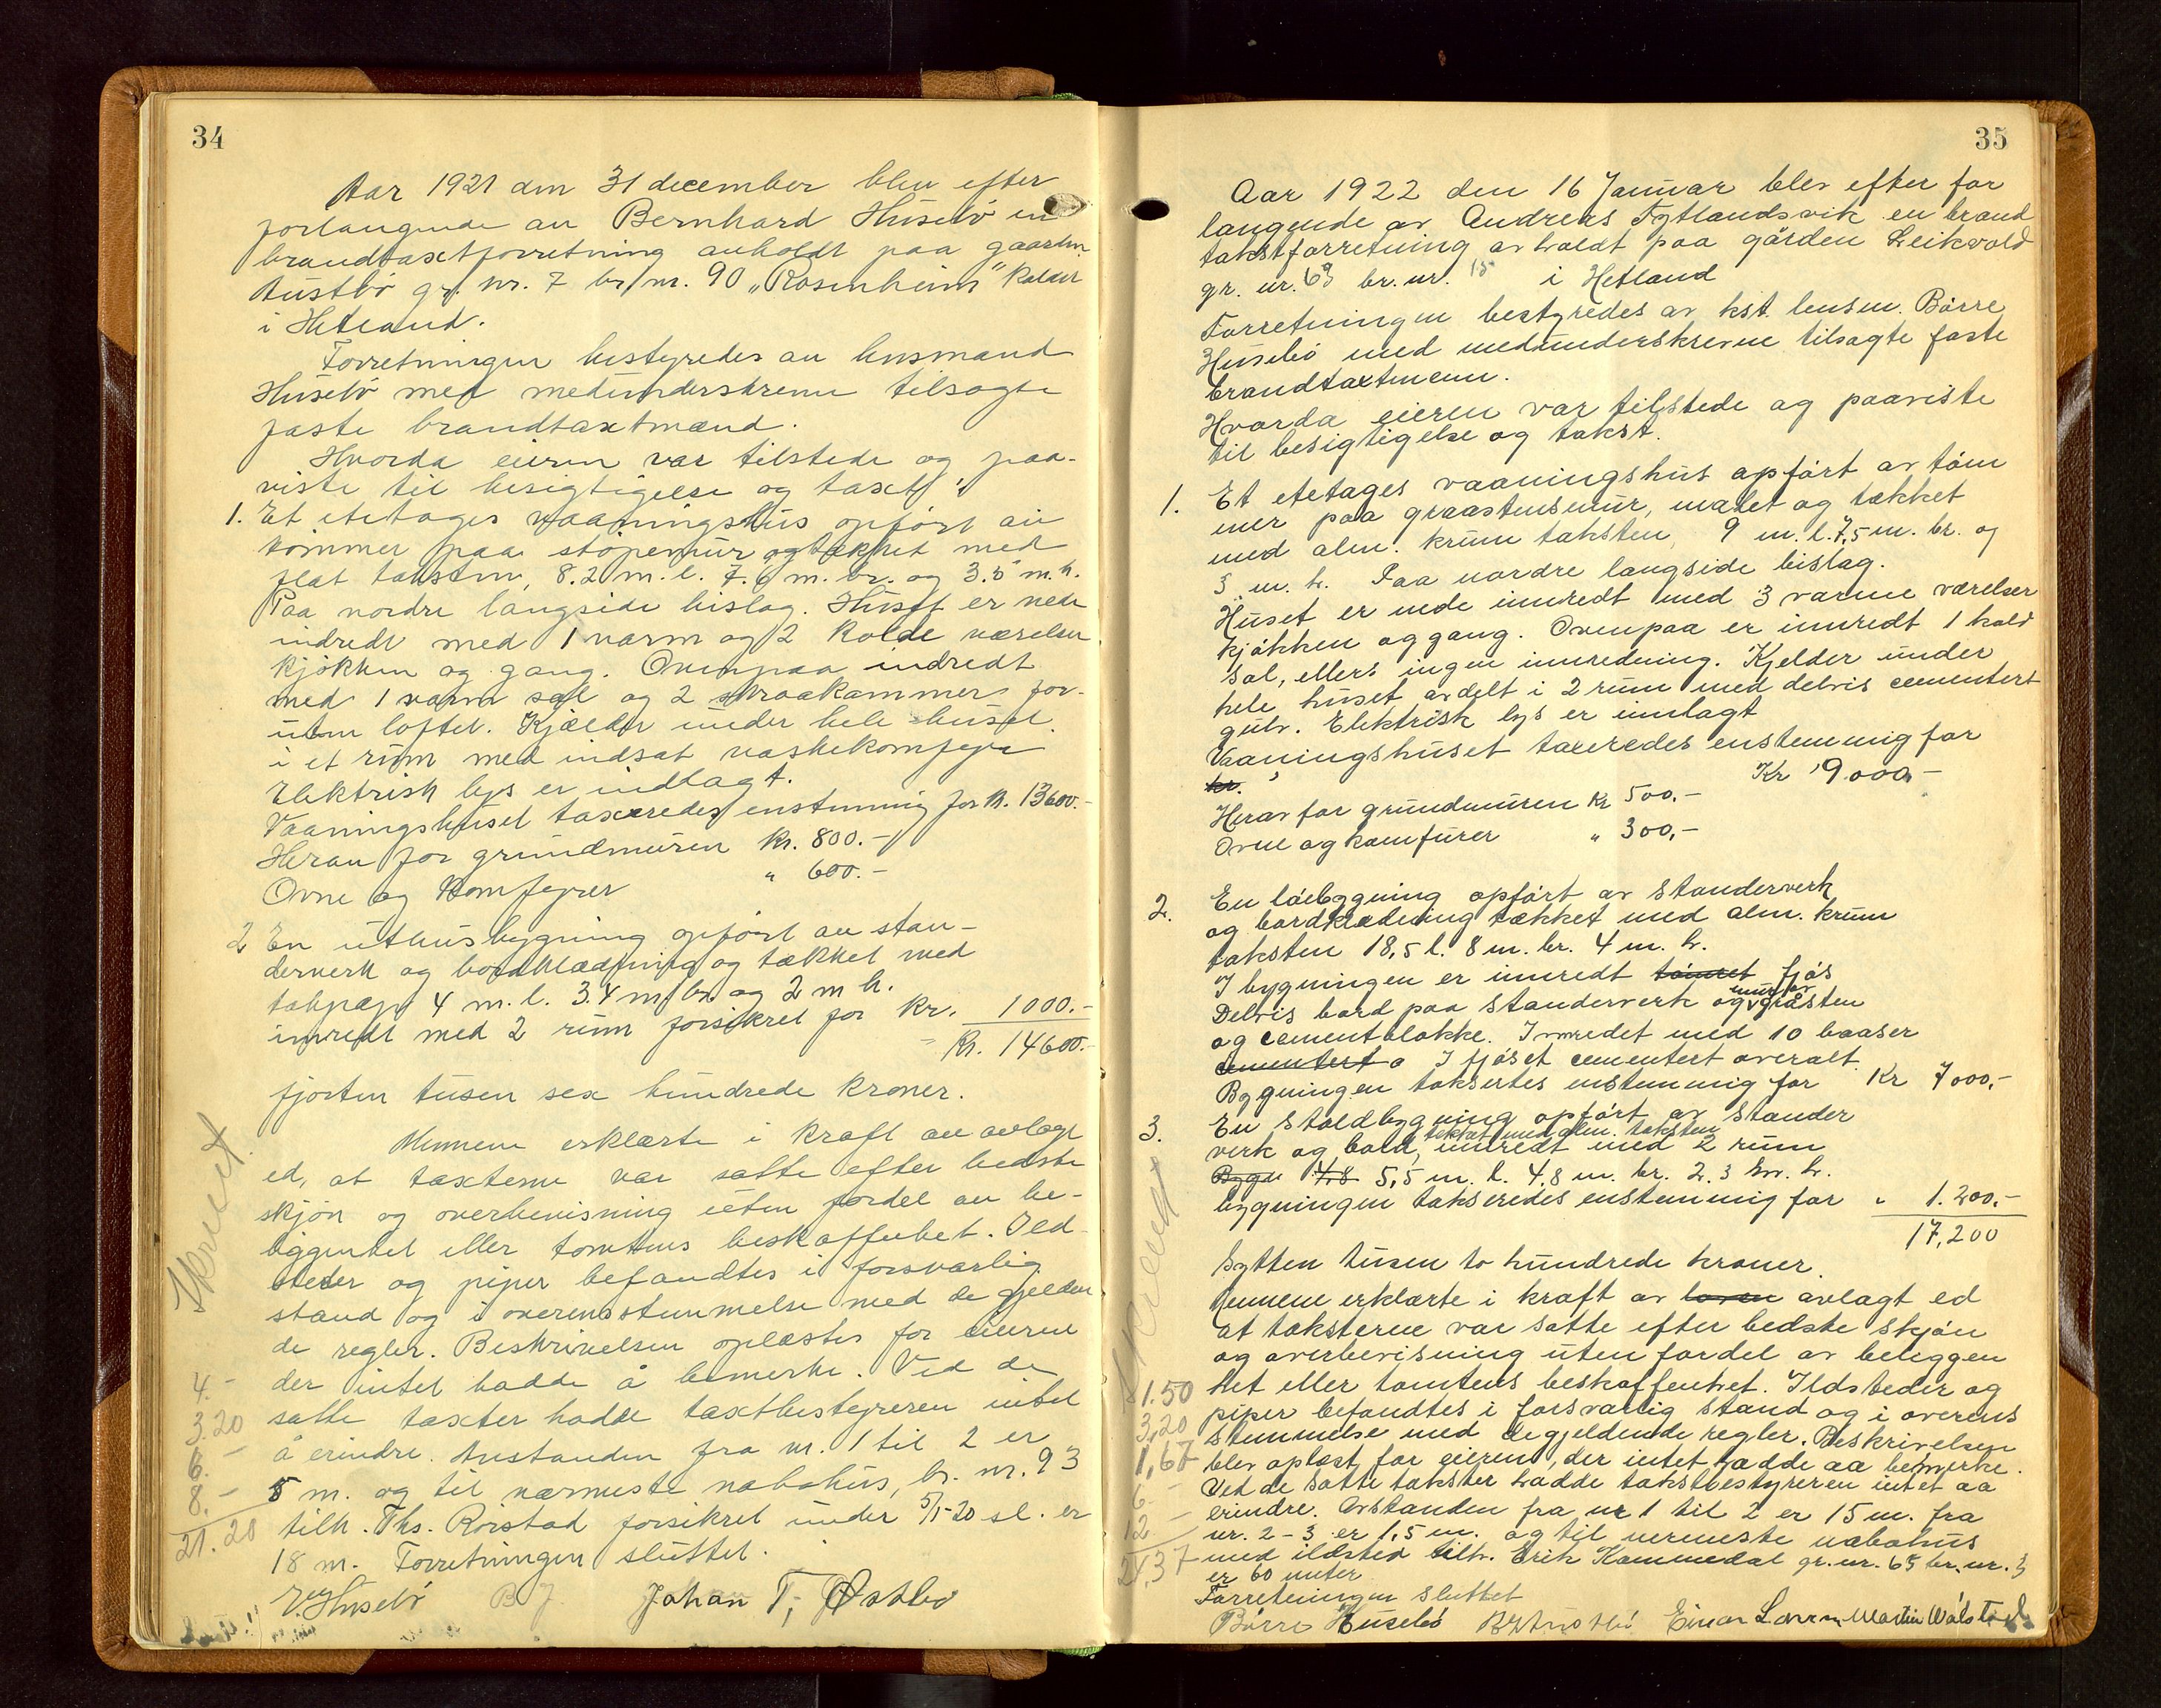 34
Aar 1921 den 31 december blev efter
forlangende av Bernhard Husebö en
brandtaxtforretning avholdt paa gaarden
Austbö gr. nr. 7 br. nr. 90 "Rosenheim" kaldet
i Hetland.
Forretningen bestyredes av lensmand
Husebö med medunderskrevne tilsagte
faste brandtaxtmænd.
Hvorda eieren var tilstede og paa-
viste til besigtigelse og taxt:
1. Et etetages vaaningshus opfört av
tömmer paa stöpemur og tækket med
flat taksten, 8.2 m. l. 7.6 m. br. og 3.5 m. h.
Paa nordre langside bislag. Huset er nede
indredt med 1 varm og 2 kolde værelser
kjökken og gang. Ovenpaa indredt
med 1 varm sal og 2 skraakammer for-
uten loftet. Kjælder under hele huset.
i et rum med indsat vaskekomfyr
Elektrisk lys er indlagt.
Vaaningshuset taxeredes enstemmig for kr. 13600.-
Herav for grundmuren kr. 800.-
Ovne og komfyrer " 600.-
2 En uthusbygning opfört av stan-
derverk og bordklædning og tækket med
takpap 4 m. l. 3.4 m br. og 2 m h.
inredt med 2 rum forsikret for kr. 1000.-
Kr. 14600.-
fjorten tusen sex hundrede kroner.
Mennene erklærte i kraft av avlagt
ed, at taxterne var satte efter bedste
skjön og overbevisning uten fordel av be-
liggenhet eller tomtens beskaffenhet. Ild-
steder og piper befandtes i forsvarlig
stand og i overensstemmelse med de gjelden
de regler. Beskrivelsen oplæstes for eieren
der intet hadde å bemerke. Ved de
satte taxter hadde taxtbestyreren intet
å erindre. Avstanden fra nr. 1 til 2 er
5 m. og til nærmeste nabohus, br. nr. 93
tilh. Ths. Rörstad forsikret under 5/1-20 sl. er
18 m. Forretningen sluttet.
Skrevet.
4.-
3.20
6.-
8.-
21.20
V. Husebö B J Johan T. Østbö
35
Aar 1922 den 16 Januar blev efter for
langende av Andreas Tytlandsvik en brand
takstforretning avholdt paa gården Leikvold
gr. nr. 69 br. nr. 15 i Hetland
Forretningen bestyredes av kst. lensm. Börre
Husebö med medunderskrevne tilsagte faste
brandtaxtmenn.
Hvorda eieren var tilstede og paaviste
til besigtigelse og takst.
1. Et etetages vaaningshus opfört av töm
mer paa graastensmur, malet og tækket
med alm. krum taksten, 9 m. l. 7,5 m. br. og
3 m. h. Paa nordre langside bislag.
Huset er nede innredt med 3 varme værelser
kjökken og gang. Ovenpaa er innredt 1 kold
sal, ellers ingen innredning. Kjelder under
hele huset avdelt i 2 rum med delvis cementert
gulv. Elektrisk lys er innlagt
Vaaningshuset taxeredes enstemmig for
kr. Kr 9000,-
Herav for grundmuren Kr 500.-
Ovne og komfurer " 300,-
2. En löebygning opfört av standerverk
og bordklædning tækket med alm. krum
taksten 18,5 l. 8 m. br. 4 m. h.
I bygningen er innredt tömret fjös
Delvis bord paa standerverk og mur av gråsten
og cementblokke. Innredet med 10 baaser
cementert o I fjöset cementert overalt.
Bygningen taksertes enstemmig for Kr 7000,-
3. En staldbygning opfört av stander
verk og bord, tekket med alm. taksten innredt med 2 rum
Bygn 4,8 5,5 m. l. 4,8 m. br. 2,3 m. h.
bygningen takseredes enstemmig for " 1.200,-
17,200
Sytten tusen to hundrede kroner.
Mennene erklærte i kraft av loven avlagt ed
at taksterne var satte efter bedste skjön
og overbevisning uten fordel av beliggen
het eller tomtens beskaffenhet. Ildsteder og
piper befandtes i forsvarlig stand og i overens
stemmelse med de gjeldende regler. Beskrivelsen
blev oplæst for eieren, der intet hadde aa bemerke.
Ved de satte takster hadde takstbestyreren intet aa
erindre. Avstanden fra nr 1 til 2 er 15 m. fra
nr. 2 - 3 er 1,5 m. og til nermeste nabohus
med ildsted tilh. Erik Kammedal gr. nr. 65 br. nr. 3
er 60 meter
Forretningen sluttet
Skrevet
1.50
3,20
1,67
6.-
12.-
24,37
Börre Husebö Einar Larsen Martin Wålstad